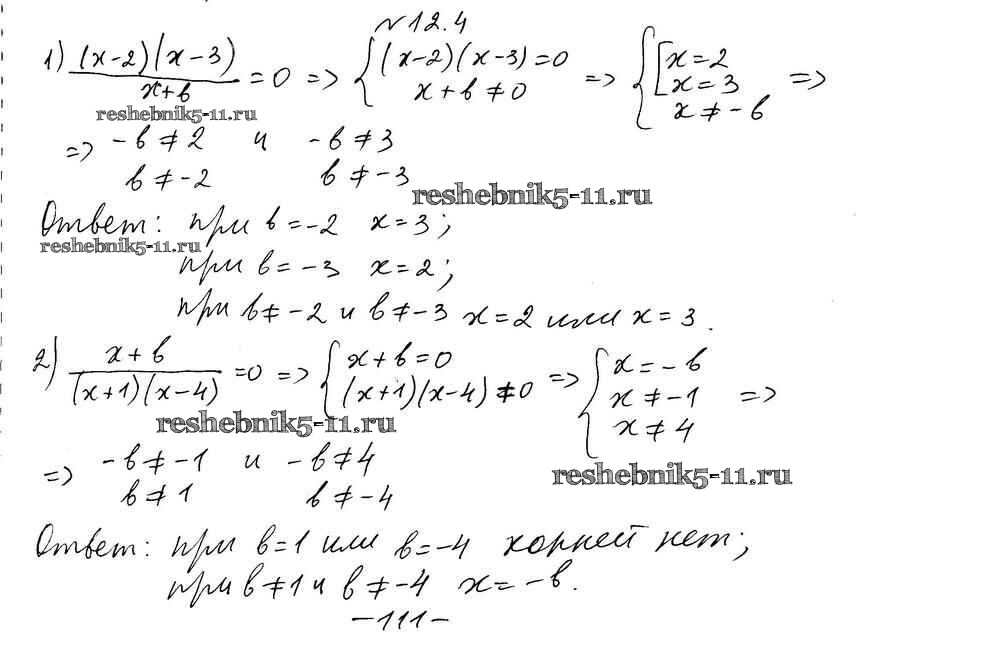 №12.4
1) (x-2)(x-3)/(x+b) = 0 => { (x-2)(x-3)=0 ; x+b≠0 => { [ x=2 ; x=3 ; x≠-b =>
reshebnik5-11.ru
=> -b≠2 и -b≠3
b≠-2 b≠-3
reshebnik5-11.ru
Ответ: при b=-2 x=3;
reshebnik5-11.ru
при b=-3 x=2;
при b≠-2 и b≠-3 x=2 или x=3.
2) (x+b)/((x+1)(x-4)) =0 => { x+b=0 ; (x+1)(x-4)≠0 => { x=-b ; x≠-1 ; x≠4 =>
reshebnik5-11.ru
=> -b≠-1 и -b≠4
reshebnik5-11.ru
b≠1 b≠-4
Ответ: при b=1 или b=-4 корней нет;
при b≠1 и b≠-4 x=-b.
-111-